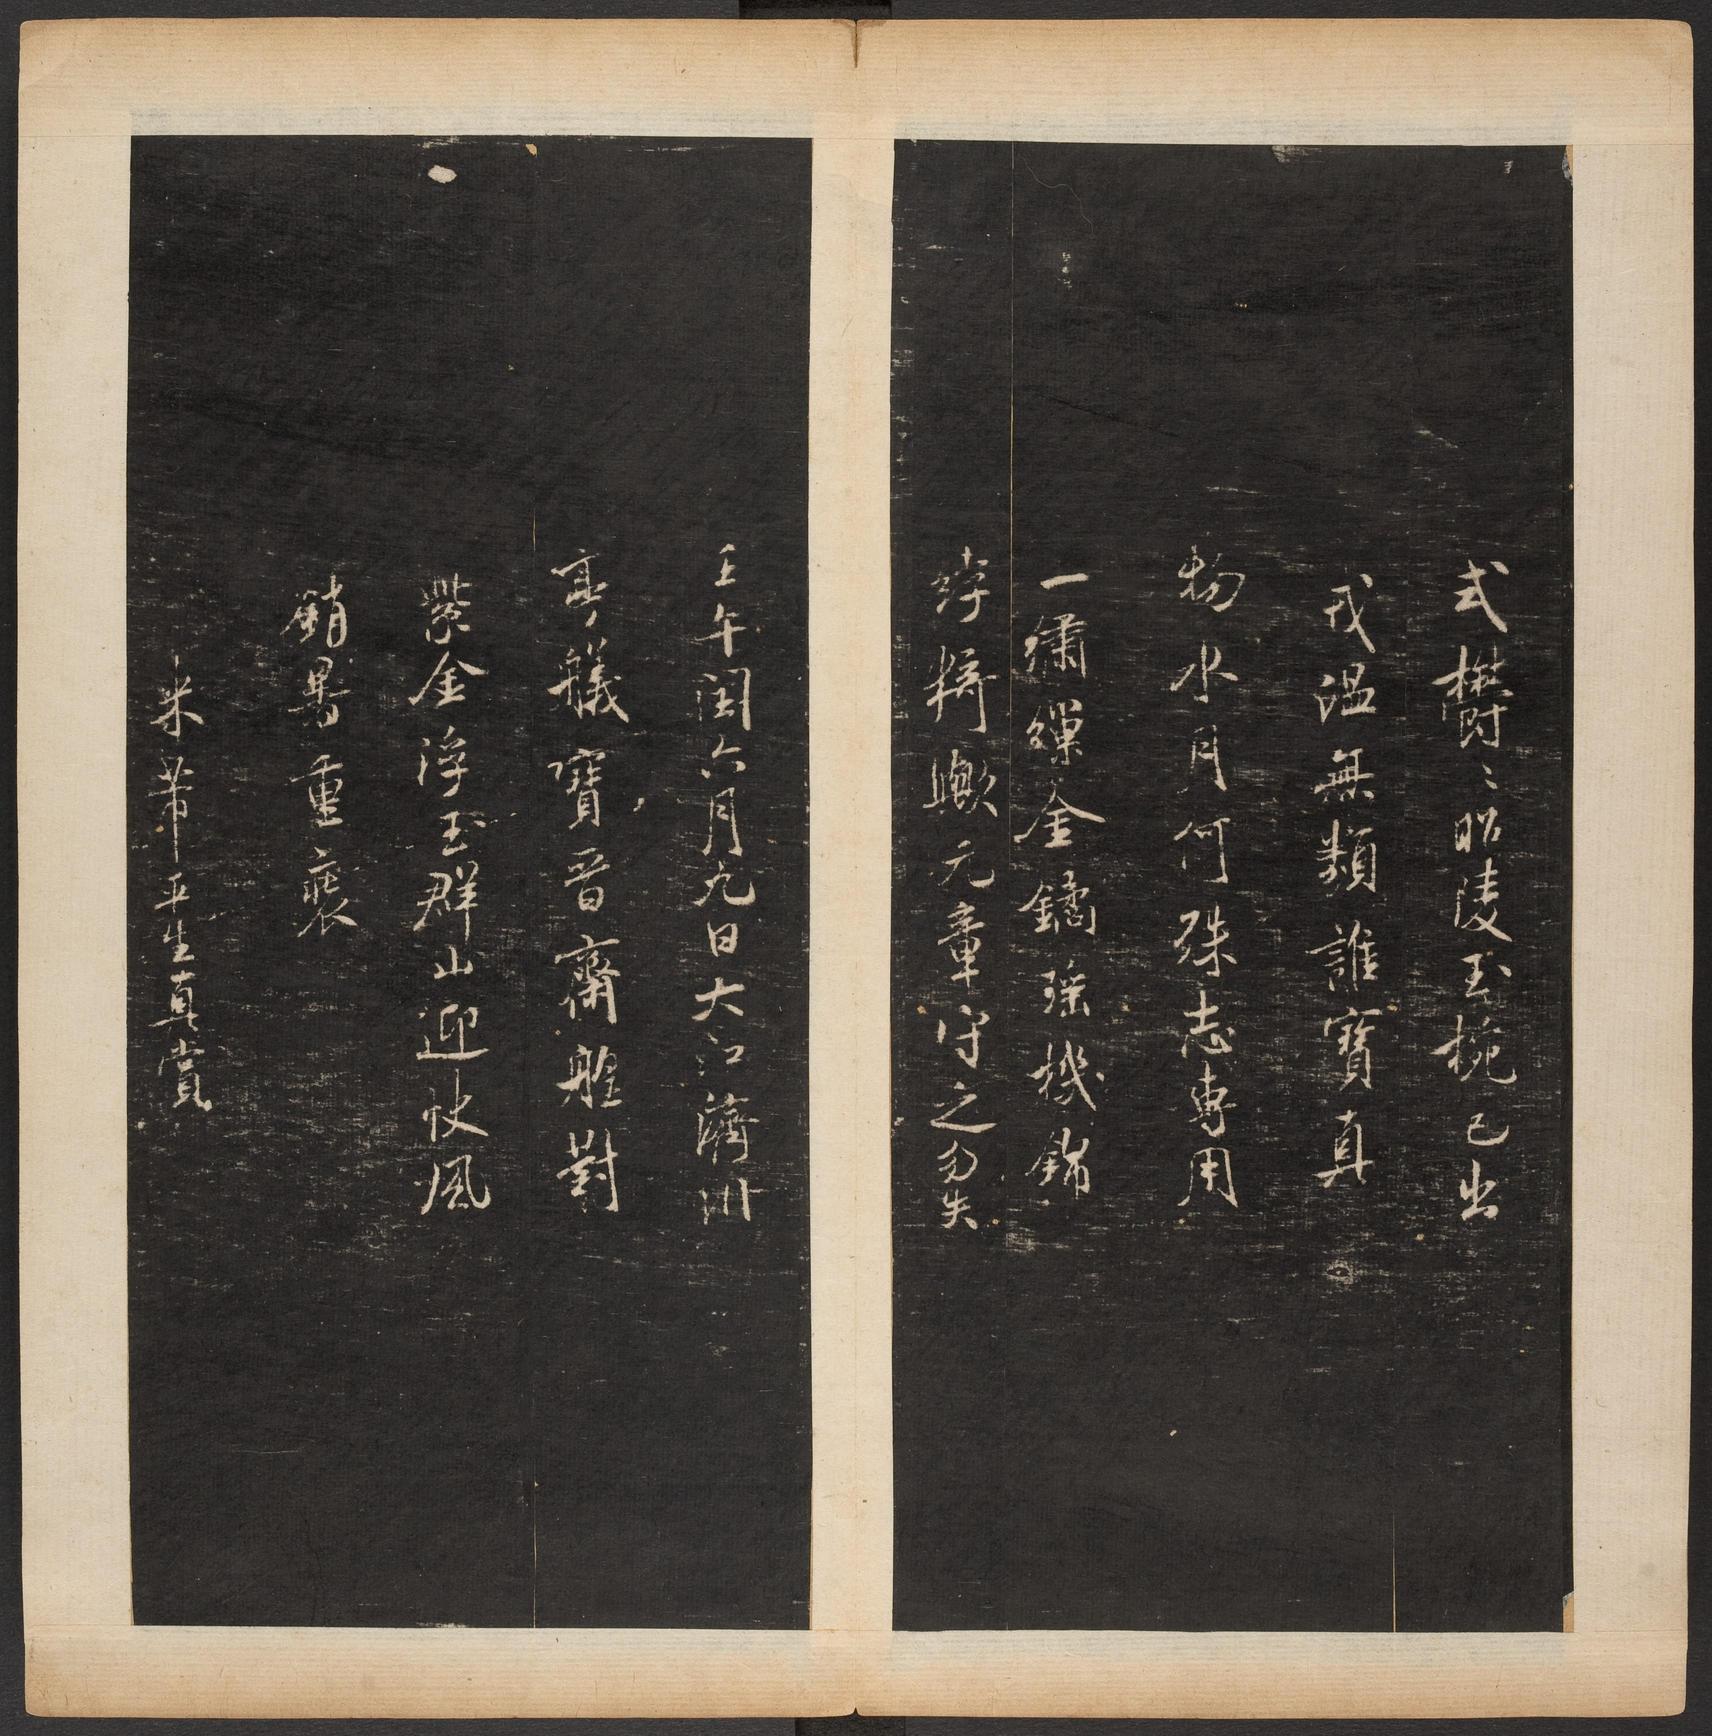 式欝〻昭陵玉椀已出
戎温無類誰寳真
物水月何殊志專用
一繡繅金鐍瑶機錦
綍猗歟元章守之勿失
壬午閏六月九日大江濟川
亭艤寳晉齋艎對
紫金浮玉群山迎快風
銷暑重裝
米芾平生真賞